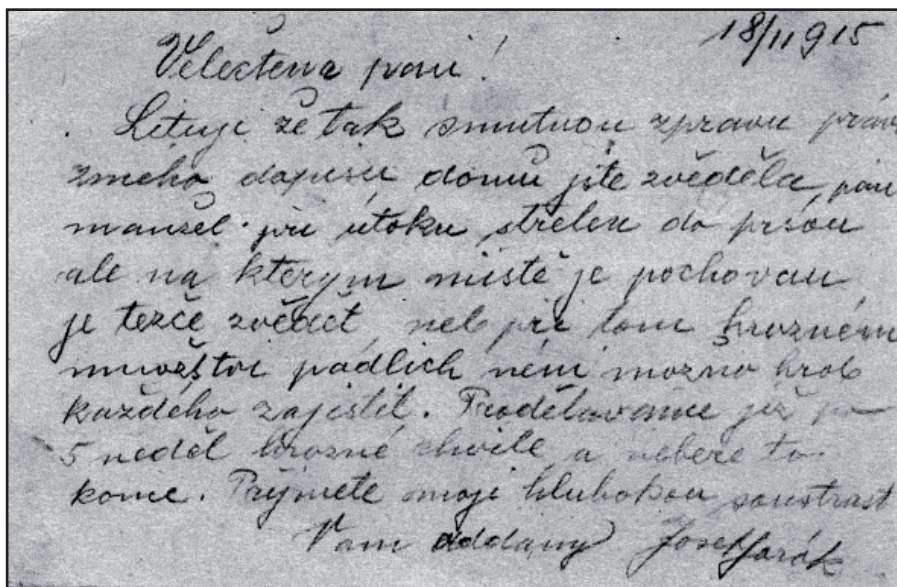 18/11 915
Velectena paní!
Lituji že tak smutnou zpravu práv
zmeho dopisu domů jste zvěděla, pan
manžel při útoku střelen do prsou
ale na kterym mistě je pochovan
je tezče zvědět neb při tom hrozném
množstvi padlich neni možno hrob
každého zajistit. Proděláváme již po
5 neděl hrozné chvile a nebere to
konce. Prijmete moji hlubokou soustrast
Vam oddany Josef